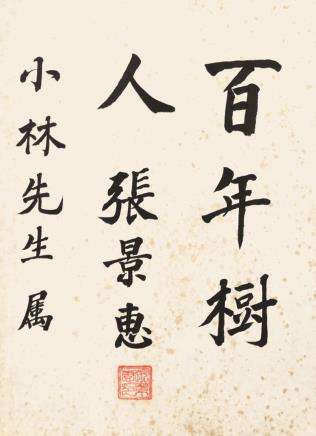 百年樹
人 張景惠
小林先生属